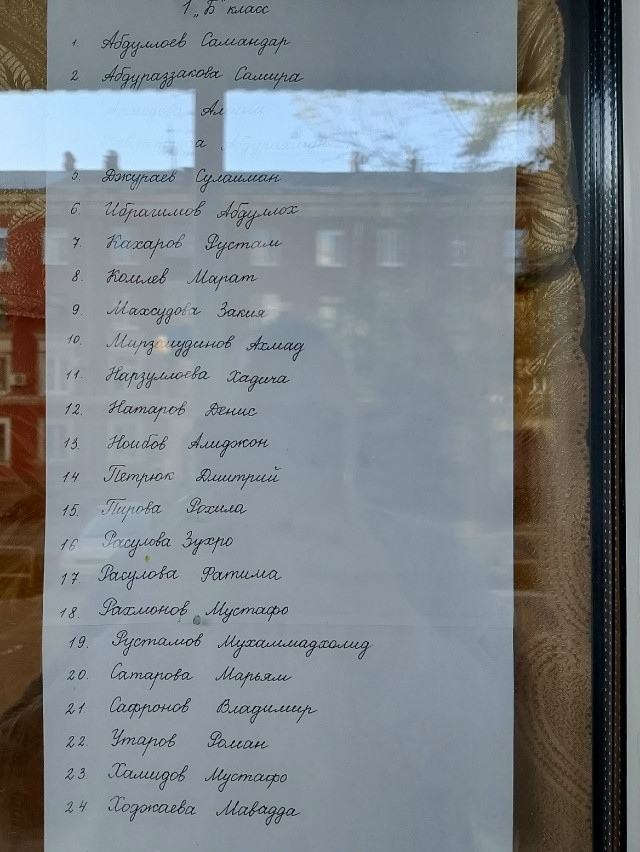 1 „Б" класс
1. Абдуллоев Самандар
2. Абдураззакова Самира
5. Джураев Сулайман
6. Ибрагимов Абдуллох
7. Кахаров Рустам
8. Комлев Марат
9. Махсудова Закия
10. Мирзомудинов Ахмад
11. Нарзуллоева Хадича
12. Натаров Денис
13. Ноибов Алиджон
14. Петрюк Дмитрий
15. Пирова Рохила
16 Расулова Зухро
17. Расулова Фатима
18. Рахмонов Мустафо
19. Рустамов Мухаммадхолид
20. Сатарова Марьям
21. Сафронов Владимир
22. Утаров Роман
23. Хамидов Мустафо
24 Ходжаева Мавадда